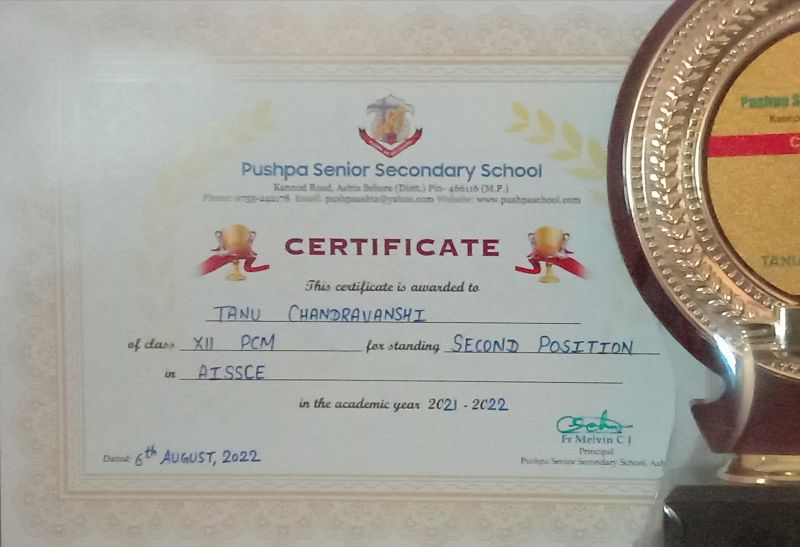 Pushpa Senior Secondary School
Kannod Road, Ashta Sehore (Distt.) Pin- 466116 (M.P.)
Phone: 0755-242178 Email: pushpaashta@yahoo.com Website: www.pushpaschool.com
CERTIFICATE
This certificate is awarded to
TANU CHANDRAVANSHI
of class XII PCM for standing SECOND POSITION
in AISSCE
in the academic year 2021 - 2022
Fr Melvin C J
Principal
Pushpa Senior Secondary School, Ash
Dated: 6th AUGUST, 2022
Pushpa S
Kannod
C
TANU